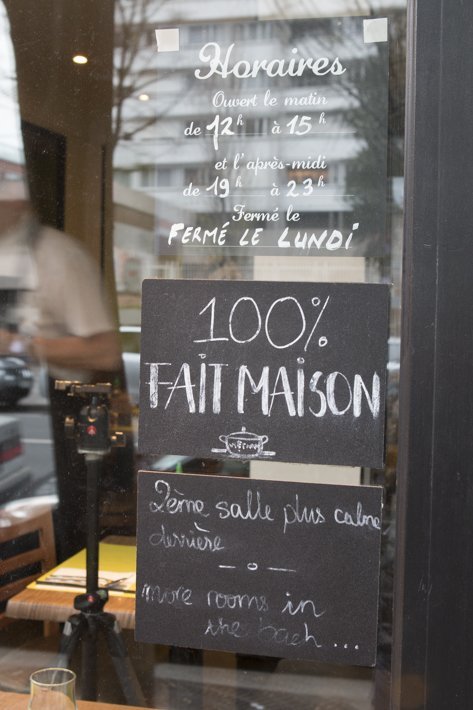 Horaires
Ouvert le matin
de 12h à 15h
et l'après-midi
de 19h à 23h
Fermé le
FERMÉ LE LUNDI
100%
FAIT MAISON
2ème salle plus calme
derrière
more rooms in
the bach...